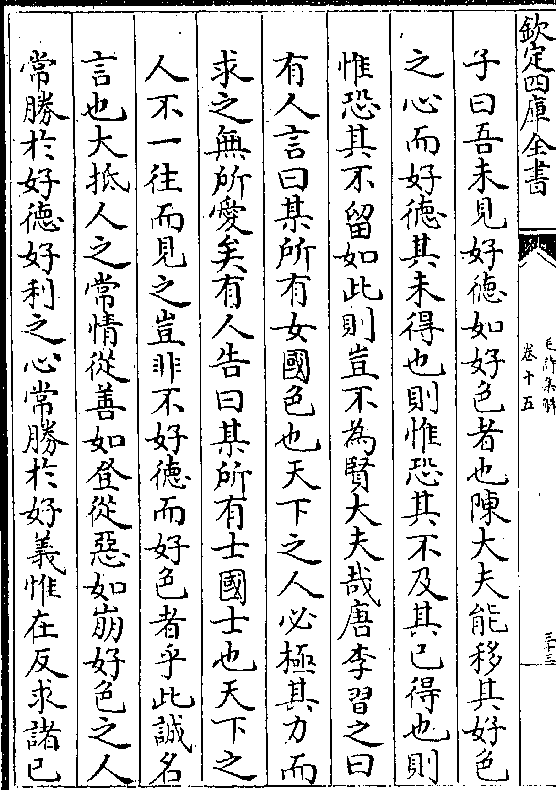 欽定四庫全書
毛詩集解
卷十五
三十三
子曰吾未見好德如好色者也陳大夫能移其好色
之心而好德其未得也則惟恐其不及其已得也則
惟恐其不留如此則豈不為賢大夫哉唐李習之曰
有人言曰某所有女國色也天下之人必極其力而
求之無所愛矣有人告曰某所有士國士也天下之
人不一往而見之豈非不好德而好色者乎此誠名
言也大抵人之常情從善如登從惡如崩好色之人
常勝於好德好利之心常勝於好義惟在反求諸已